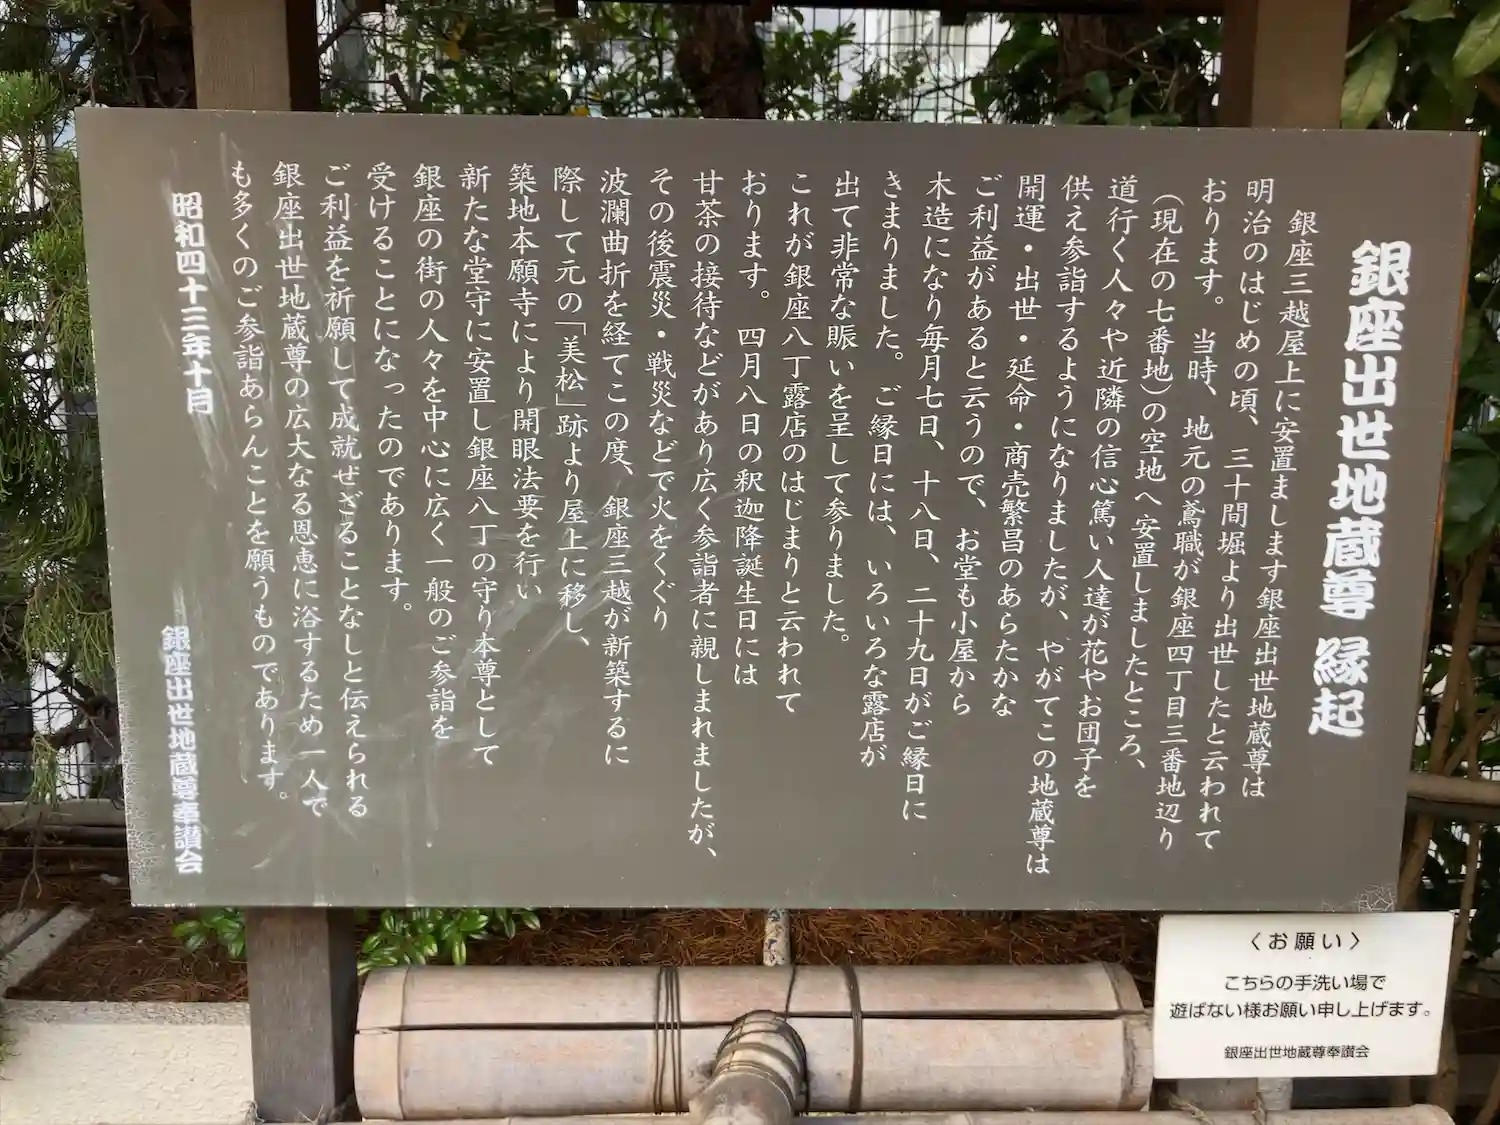 銀座出世地蔵尊 縁起
銀座三越屋上に安置まします銀座出世地蔵尊は
明治のはじめの頃、三十間堀より出世したと云われて
おります。 当時、地元の鳶職が銀座四丁目三番地辺り
(現在の七番地)の空地へ安置しましたところ、
道行く人々や近隣の信心篤い人達が花やお団子を
供え参詣するようになりましたが、やがてこの地蔵尊は
開運・出世・延命・商売繁昌のあらたかな
ご利益があると云うので、お堂も小屋から
木造になり毎月七日、十八日、二十九日がご縁日に
きまりました。ご縁日には、いろいろな露店が
出て非常な賑いを呈して参りました。
これが銀座八丁露店のはじまりと云われて
おります。四月八日の釈迦降誕生日には
甘茶の接待などがあり広く参詣者に親しまれましたが、
その後震災・戦災などで火をくぐり
波瀾曲折を経てこの度、銀座三越が新築するに
際して元の「美松」跡より屋上に移し、
築地本願寺により開眼法要を行い
新たな堂守に安置し銀座八丁の守り本尊として
銀座の街の人々を中心に広く一般のご参詣を
受けることになったのであります。
ご利益を祈願して成就せざることなしと伝えられる
銀座出世地蔵尊の広大なる恩恵に浴するため一人で
も多くのご参詣あらんことを願うものであります。
昭和四十三年十月
銀座出世地蔵尊奉讃会
〈お願い〉
こちらの手洗い場で
遊ばない様お願い申し上げます。
銀座出世地蔵尊奉讃会